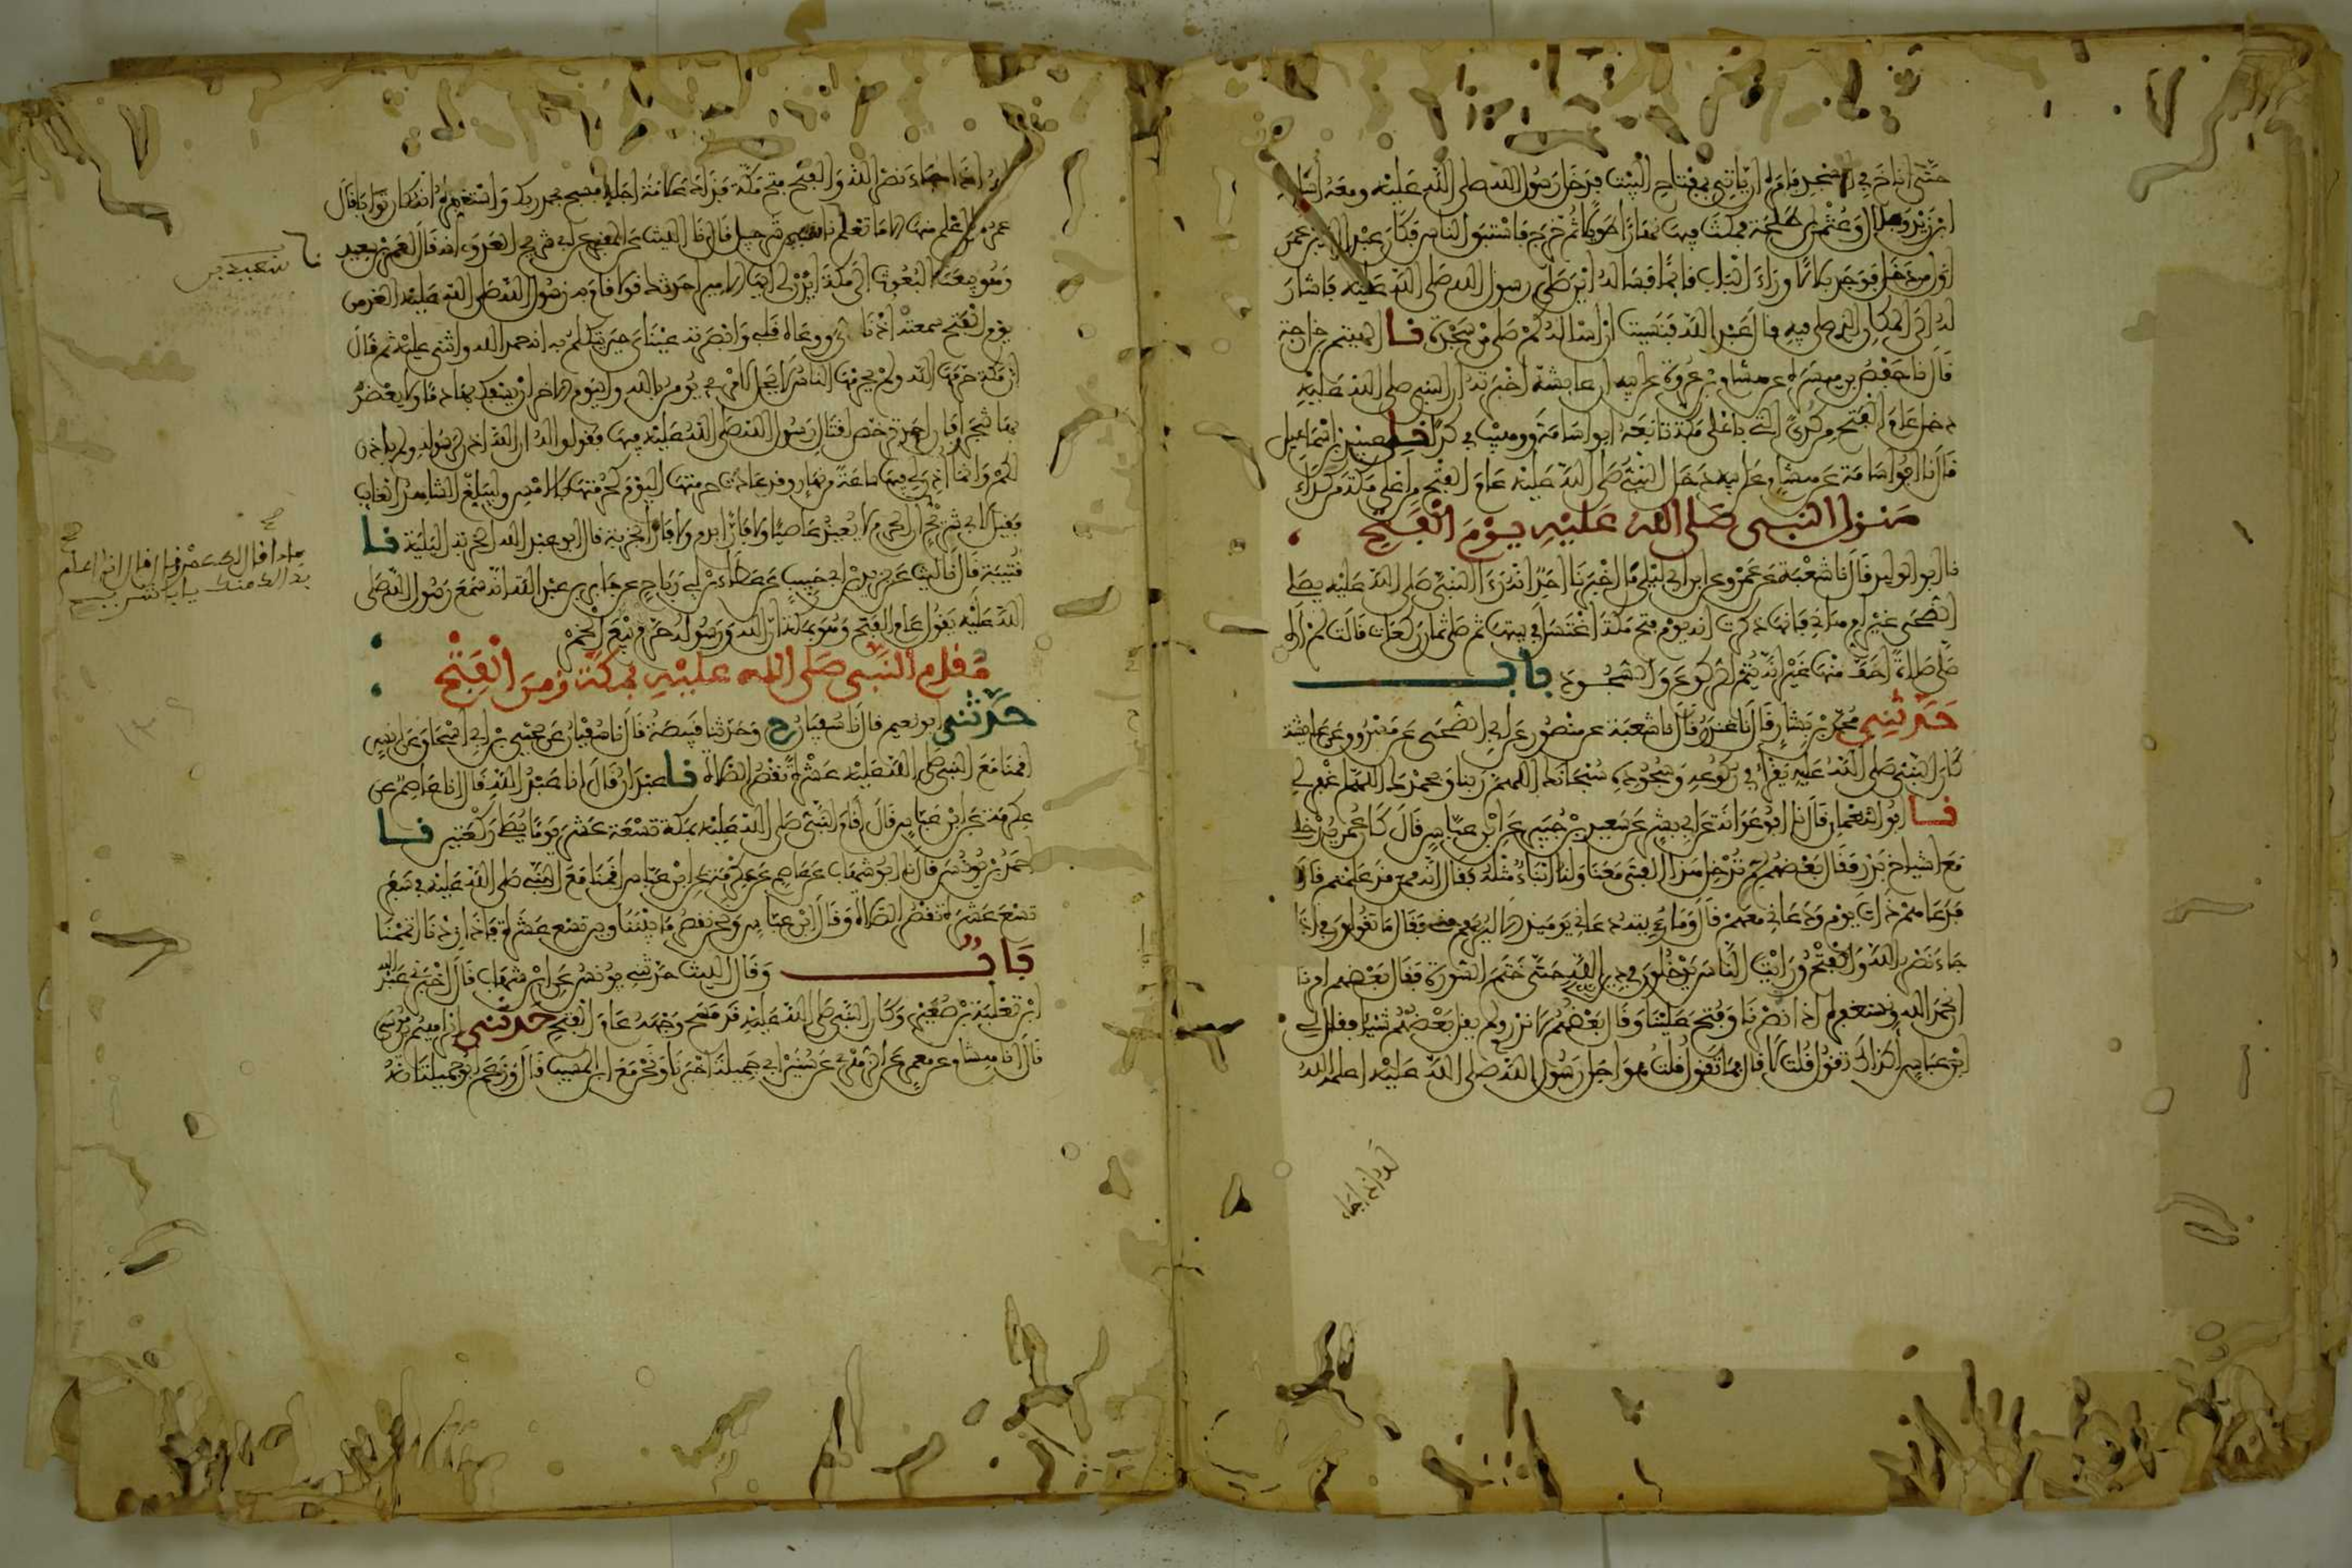 حتى أناخ في المسجد فأمره أن يأتي بمفتاح البيت فدخل رسول الله صلى الله عليه ومعه أسامة
ابن زيد وبلال وعثمن بن طلحة فمكث فيه نهارا طويلا ثم خرج فاستبق الناس فكان عبد الله بن عمر
أول من دخل فوجد بلالا وراء الباب قائما فسأله أين صلى رسول الله صلى الله عليه فأشار
له إلى المكان الذي صلى فيه قال عبد الله فنسيت أن أسأله كم صلى من سجدة نا الهيثم بن خارجة
قال نا حفص بن ميسرة عن هشام بن عروة عن أبيه أن عائشة أخبرته أن النبي صلى الله عليه
دخل عام الفتح من كداء التي بأعلى مكة تابعه أبو أسامة ووهيب في كداء نا عبيد بن إسماعيل
قال نا أبو أسامة عن هشام عن أبيه دخل النبي صلى الله عليه عام الفتح من أعلى مكة من كداء
منزل النبي صلى الله عليه يوم الفتح
نا أبو الوليد قال نا شعبة عن عمرو عن ابن أبي ليلى قال ما أخبرنا أحد أنه رءا النبي صلى الله عليه يصلي
الضحى غير أم هانئ فإنها ذكرت أنه يوم فتح مكة اغتسل في بيتها ثم صلى ثمان ركعات قالت لم أره
صلى صلاة أخف منها غير أنه يتم الركوع والسجود باب
حدثني محمد بن بشار قال نا غندر قال نا شعبة عن منصور عن أبي الضحى عن مسروق عن عائشة
كان النبي صلى الله عليه يقرأ في ركوعه وسجوده سبحانك اللهم ربنا وبحمدك اللهم اغفر لي
نا أبو النعمان قال نا أبو عوانة عن أبي بشر عن سعيد بن جبير عن ابن عباس قال كان عمر يدخلني
مع أشياخ بدر فقال بعضهم لم تدخل هذا الفتى معنا ولنا أبناء مثله فقال إنه ممن قد علمتم قال
فدعاهم ذات يوم ودعاني معهم قال وما رئيته دعاني يومئذ إلا ليريهم مني فقال ما تقولون في إذا
جاء نصر الله والفتح ورأيت الناس يدخلون في دين الله حتى ختم السورة فقال بعضهم أمرنا
أن نحمد الله ونستغفره إذا نصرنا وفتح علينا وقال بعضهم لا ندري ولم يقل بعضهم شيئا فقال لي
ابن عباس أكذاك تقول قلت لا قال فما تقول قلت هو أجل رسول الله صلى الله عليه أعلمه الله
له إذا جاء
له إذا جاء نصر الله والفتح فتح مكة فذاك علامة أجلك فسبح بحمد ربك واستغفره إنه كان توابا قال
عمر ما أعلم منها إلا ما تعلم نا سعيد بن شرحبيل قال نا الليث عن المقبري عن أبي شريح العدوي أنه قال لعمرو بن سعيد
وهو يبعث البعوث إلى مكة ائذن لي أيها الأمير أحدثك قولا قام به رسول الله صلى الله عليه الغد من
يوم الفتح سمعته أذناي ووعاه قلبي وأبصرته عيناي حين تكلم به أنه حمد الله وأثنى عليه ثم قال
إن مكة حرمها الله ولم يحرمها الناس لا يحل لامرئ يومن بالله واليوم الآخر أن يسفك بها دما ولا يعضد
بها شجرا فإن أحد ترخص لقتال رسول الله صلى الله عليه فيها فقولوا له إن الله أذن لرسوله ولم يأذن
لكم وإنما أذن لي فيها ساعة من نهار وقد عادت حرمتها اليوم كحرمتها بالأمس وليبلغ الشاهد الغائب
فقيل لأبي شريح إن الحرم لا يعيذ عاصيا ولا فارا بدم ولا فارا بخربة قال أبو عبد الله الخربة البلية نا
قتيبة قال نا الليث عن يزيد بن أبي حبيب عن عطاء بن أبي رباح عن جابر بن عبد الله أنه سمع رسول الله صلى
الله عليه يقول عام الفتح وهو بمكة إن الله ورسوله حرم بيع الخمر
مقام النبي صلى الله عليه بمكة زمن الفتح
حدثني أبو نعيم قال نا سفيان ح وحدثنا قبيصة قال نا سفيان عن يحيى بن أبي إسحاق عن أنس
أقمنا مع النبي صلى الله عليه عشرا نقصر الصلاة نا عبدان قال أنا عبد الله قال أنا عاصم عن
عكرمة عن ابن عباس قال أقام النبي صلى الله عليه بمكة تسعة عشر يوما يصلي ركعتين نا
أحمد بن يونس قال نا أبو شهاب عن عاصم عن عكرمة عن ابن عباس أقمنا مع النبي صلى الله عليه في سفر
تسع عشرة نقصر الصلاة وقال ابن عباس ونحن نقصر ما بيننا وبين تسع عشرة فإذا زدنا أتممنا
باب وقال الليث حدثني يونس عن ابن شهاب قال أخبرني عبد الله
ابن ثعلبة بن صعير وكان النبي صلى الله عليه قد مسح وجهه عام الفتح حدثني إبراهيم بن موسى
قال أنا هشام عن معمر عن الزهري عن سنين أبي جميلة أخبرنا ونحن مع ابن المسيب قال وزعم أبو جميلة أنه
سعيد بن